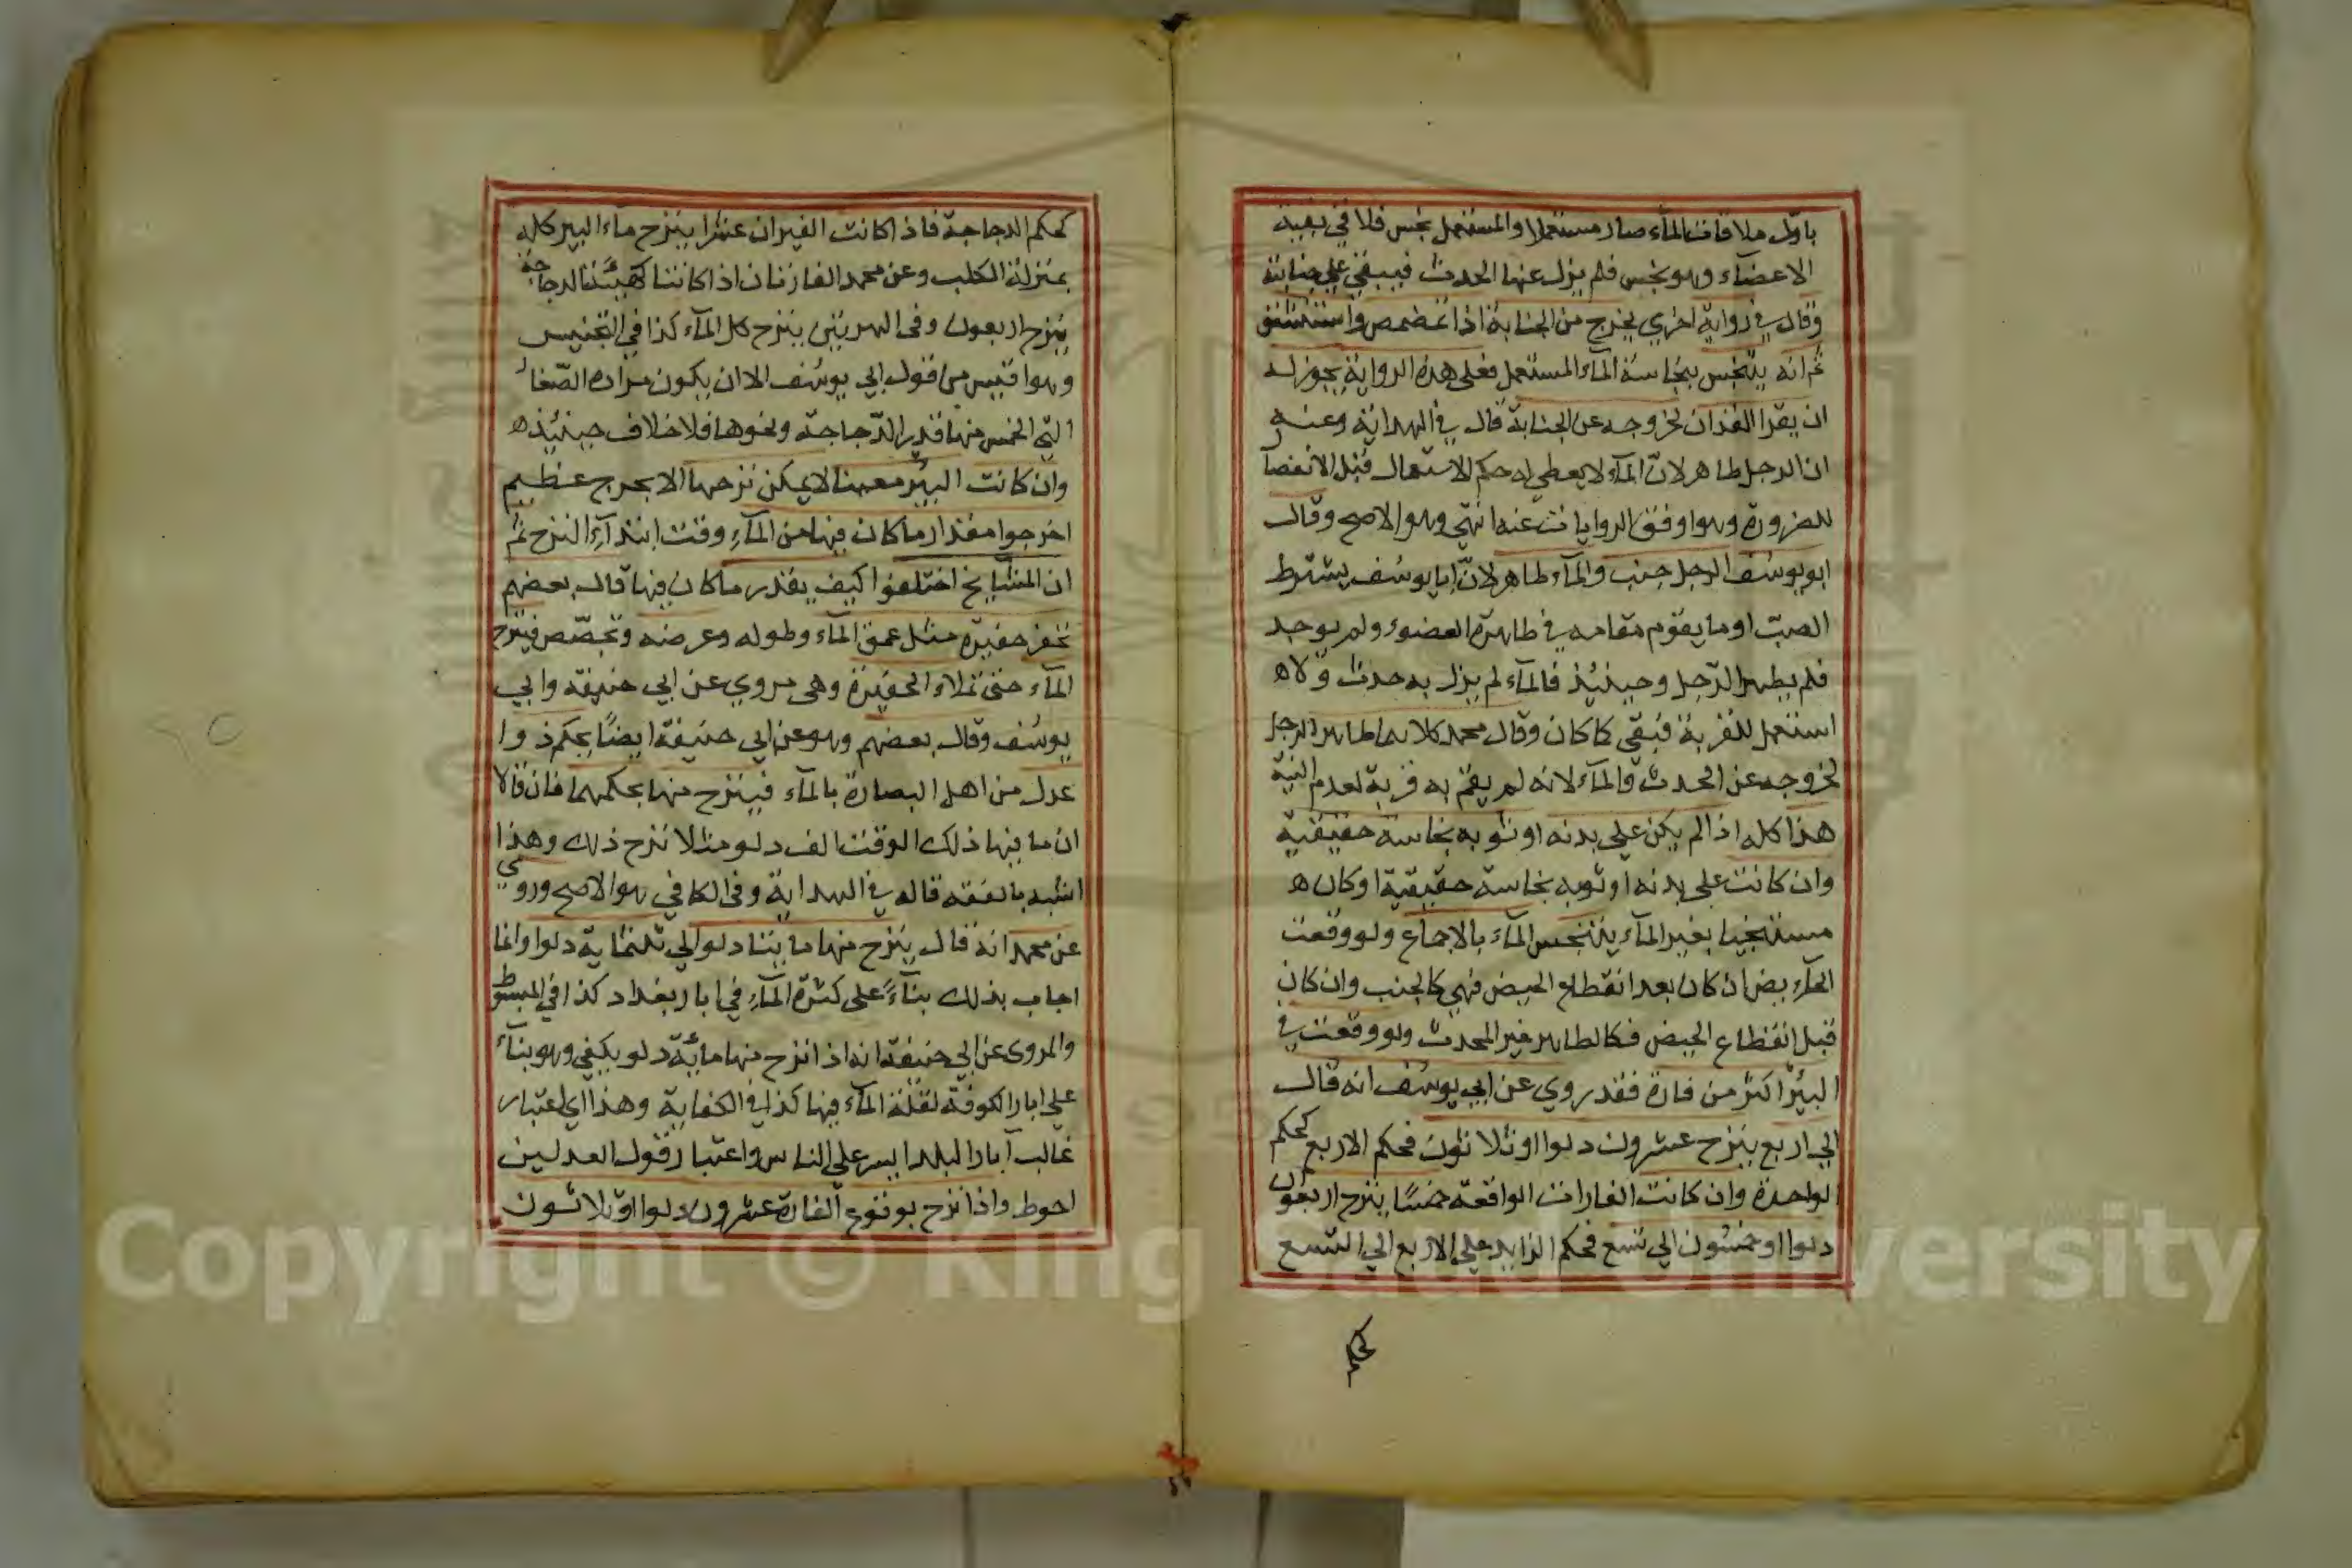 باول ملاقات المآء صار مستعملا والمستعمل نجس فلاقى بقية
الاعضآء وهو نجس فلم يزل عنها الحدث فيبقى على جنابته
وقال في رواية اخرى يخرج من الجنابة اذا تمضمض واستنشق
ثم انه يتنجس بنجاسة المآء المستعمل فعلى هذه الرواية يجوز له
ان يقرا القران لخروجه عن الجنابة قال في الهداية وعنه
ان الرجل طاهر لانّ المآء لا يعطى له حكم الاستعمال قبل الانفصا
للضرورة وهو اوفق الروايات عنه انتهى وهو الاصح وقال
ابو يوسُف الرجل جنب والمآء طاهر لانّ ابا يوسُف يشترط
الصبّ او ما يقوم مقامه في طاهرة العضو ولم يوجد
فلم يطهر الرّجل وحينئذ فالمآء لم يزل به حدث ولاه
استعمل للقربة فبقى كما كان وقال محمد كلاهما طاهر الرجل
لخروجه عن الحدث والمآء لانه لم يقم به قربة لعدم النية
هذا كله اذا لم يكن على بدنه او ثوبه نجاسة حقيقية
وان كانت على بدنه او ثوبه نجاسة حقيقية او كان ه
مستنجيا بغير المآء يتنجس المآء بالاجماع ولو وقعت
الحآيض ان كان بعد انقطاع الحيض فهي كالجنب وان كان
قبل انقطاع الحيض فكالطاهر غير المحدث ولو وقعت في
البئر اكثر من فارة فقد روي عن ابي يوسُف انه قال
الى اربع ينزح عشرون دلوا او ثلاثون فحكم الاربع كحكم
الواحدة وان كانت الفارات الواقعة خمسًا ينزح اربعون
دلوا او خمسون الى تسع فحكم الزايد على الاربع الى التسع
كحكم
كحكم الدجاجة فاذا كانت الفيران عشرا ينزح مآء البير كله
بمنزلة الكلب وعن محمد الفارتان اذا كانتا كهيئة الدجاجة
ينزح اربعون وفى الهرتين ينزح كل المآء كذا في التجنيس
وهو اقيس من قول ابي يوسُف الا ان يكون مراده الصّغار
التي الخمس منها قدر الدّجاجة ونحوها فلا خلاف حينئذ ه
وان كانت البئر معينا لا يمكن نزحها الا بحرج عظيم
اخرجوا مقدار ما كان فيها من المآء وقت ابتدآء النزح ثم
ان المشايخ اختلفوا كيف يقدر ما كان فيها قال بعضهم
تحفر حفيرة مثل عمق المآء وطوله وعرضه وتجصّص فينزح
المآء حتى تملاء الحفيرة وهى مروي عن ابي حنيفة وابي
يوسُف وقال بعضهم وهو عن ابي حنيفة ايضًا بحكم ذوا
عدل من اهل البصارة بالمآء فينزح منها بحكمهما فان قالا
ان ما فيها ذلك الوقت الف دلو مثلا نزح ذلك وهذا
اشبه بالفقه قاله في الهداية وفى الكافي هو الاصح وروى
عن محمد انه قال ينزح منها مايتا دلو الى ثلثماية دلوا وانما
اجاب بذلك بنآءً على كثرة المآء في ابار بغداد كذا في المبسوط
والمروى عن ابي حنيفة انه اذا نزح منها مائة دلو يكفي وهو بنآء
على ابار الكوفة لقلة المآء فيها كذا في الكفاية وهذا اي اعتبار
غالب آبار البلد ايسر على الناس واعتبار قول العدلين
احوط واذا نزح بوقوع الفارة عشرون دلوا او ثلاثون
Copyright © King Saud University